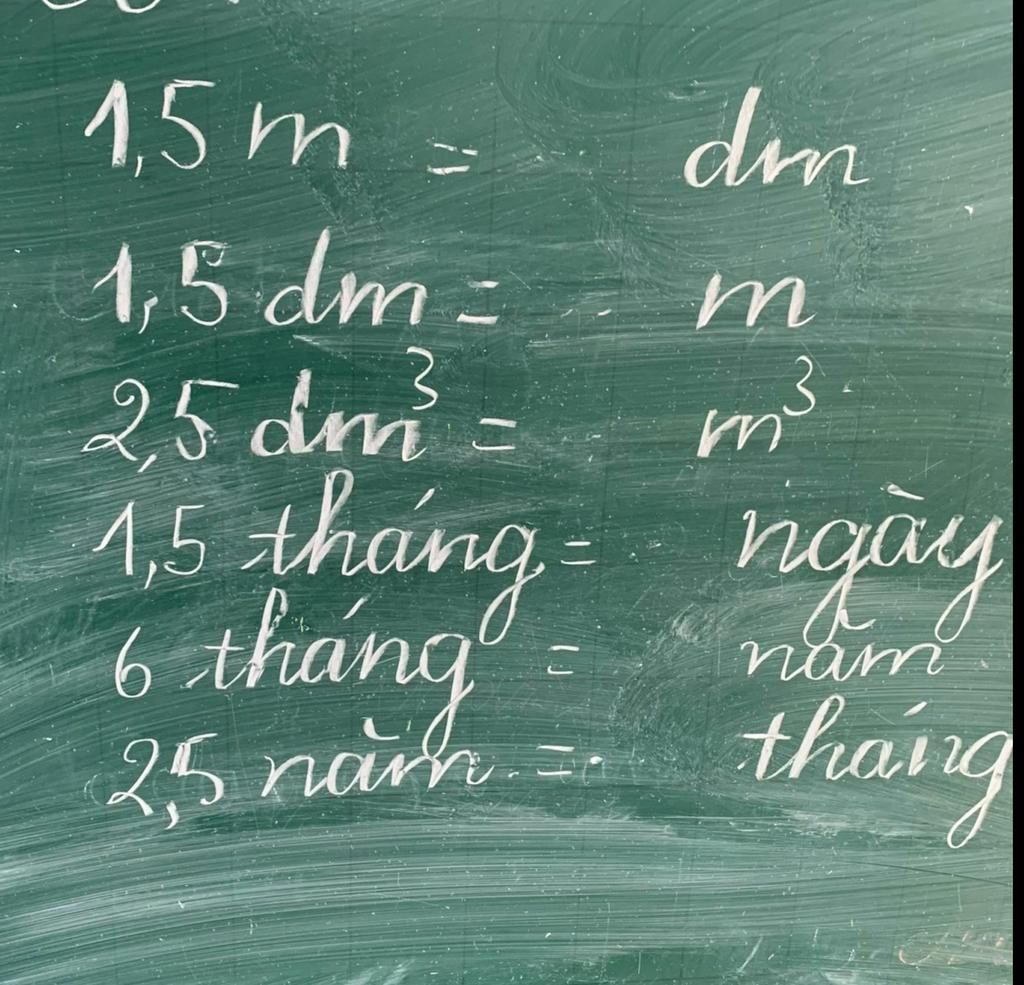 1,5 m = dm
1,5 dm = m
2,5 dm³ = m³
1,5 tháng = ngày
6 tháng = năm
2,5 năm = tháng